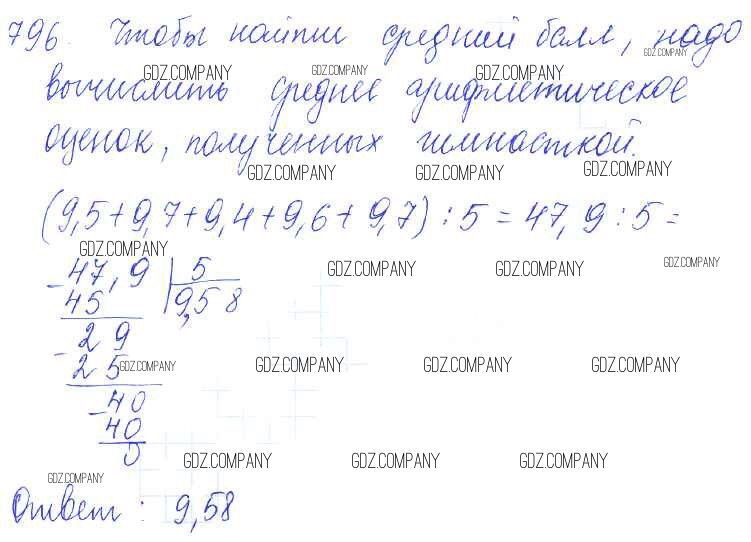 796. Чтобы найти средний балл, надо
GDZ.COMPANY
GDZ.COMPANY GDZ.COMPANY GDZ.COMPANY
вычислить среднее арифметическое
оценок, полученных гимнасткой.
GDZ.COMPANY GDZ.COMPANY GDZ.COMPANY
(9,5+9,7+9,4+9,6+9,7):5=47,9:5=
GDZ.COMPANY
GDZ.COMPANY GDZ.COMPANY GDZ.COMPANY
-47,9 | 5
45 | 9,58
- 29
25
GDZ.COMPANY GDZ.COMPANY GDZ.COMPANY GDZ.COMPANY
-40
40
0
GDZ.COMPANY GDZ.COMPANY GDZ.COMPANY
GDZ.COMPANY
Ответ: 9,58